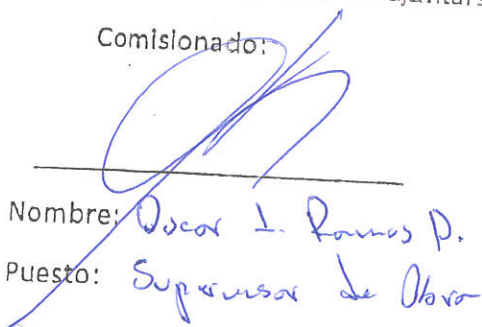 Comisionado:
Nombre: Oscar I. Ramos P.
Puesto: Supervisor de Obra